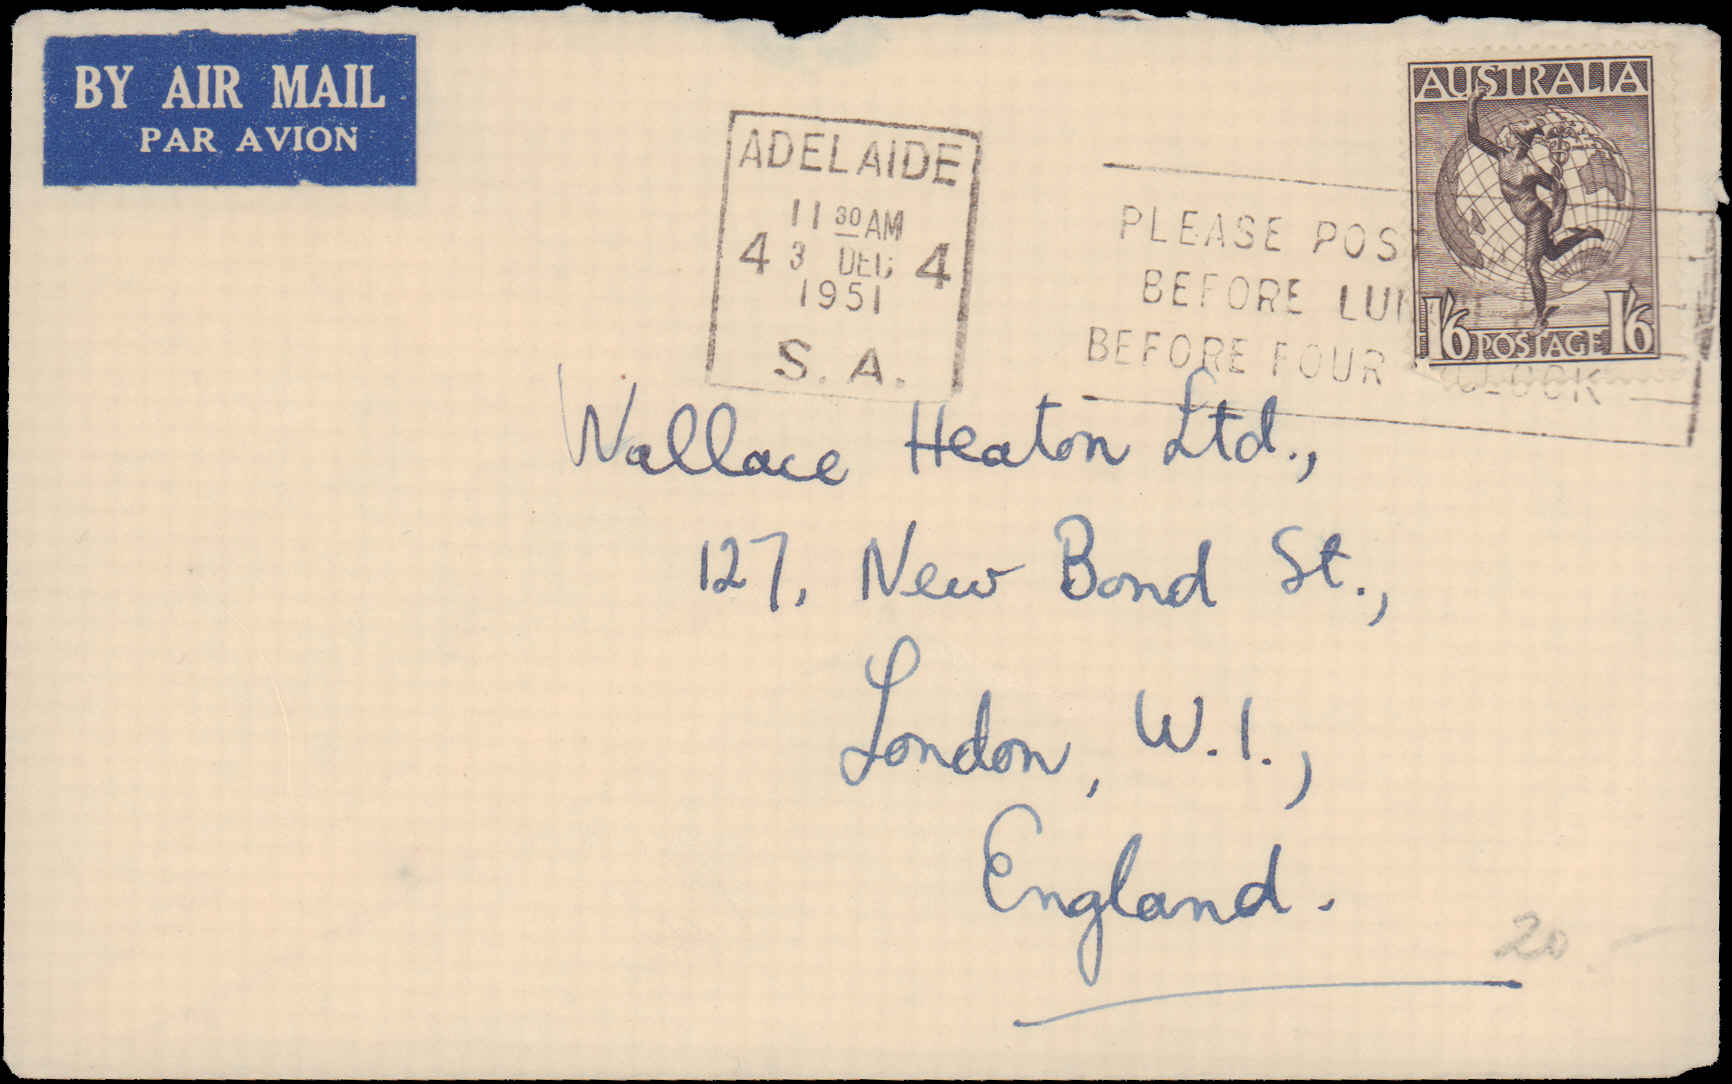 BY AIR MAIL
PAR AVION
ADELAIDE
11 30 AM
4 3 DEC 4
1951
S. A.
PLEASE POS
BEFORE LUN
BEFORE FOUR O'CLOCK
AUSTRALIA
1/6 POSTAGE 1/6
Wallace Heaton Ltd.,
127, New Bond St.,
London, W.1.,
England.
20